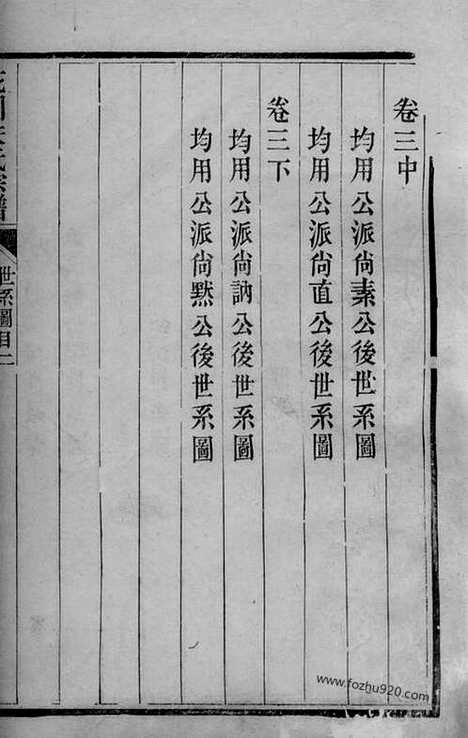 卷三中
均用公派尙素公後世系圖
均用公派尙直公後世系圖
卷三下
均用公派尙訥公後世系圖
均用公派尙默公後世系圖
氏宗譜
世系圖目二
www.fozhu920.com